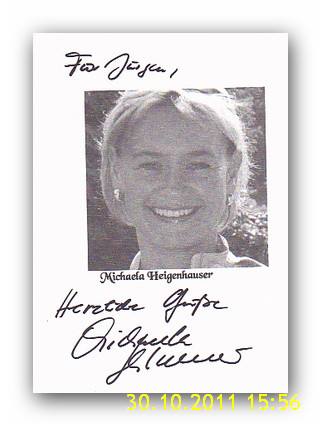 Für Jürgen,
Michaela Heigenhauser
Herzliche Grüße
Michaela
30.10.2011 15:56